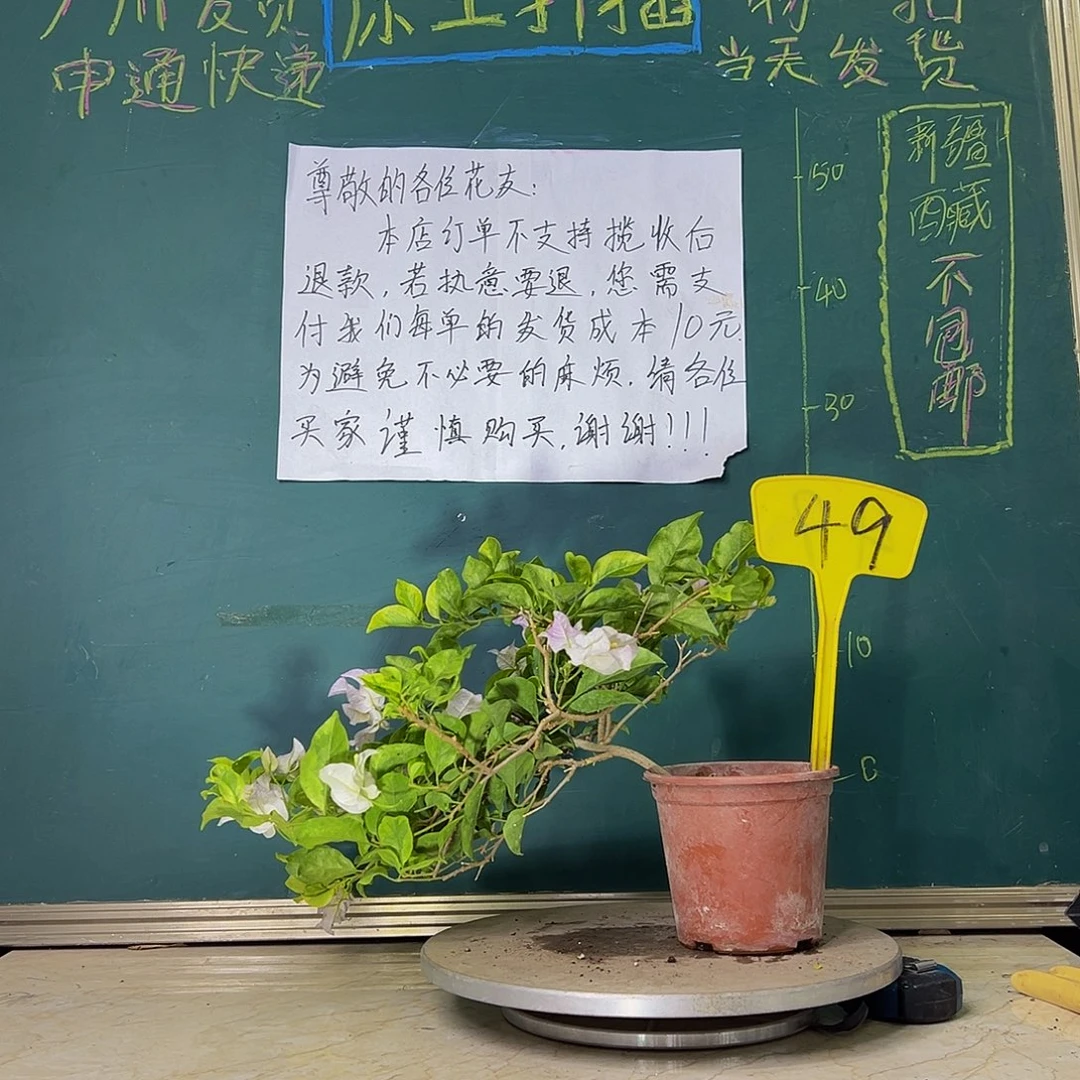 广州发货
原土扫描
申通快递
当天发货
尊敬的各位花友:
本店订单不支持揽收后
退款,若执意要退,您需支
付我们每单的发货成本10元.
为避免不必要的麻烦.请各位
买家谨慎购买,谢谢!!!
50
40
30
10
0
新疆
西藏
不
包
邮
49